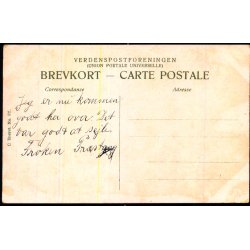 VERDENSPOSTFORENINGEN
(UNION POSTALE UNIVERSELLE)
BREVKORT — CARTE POSTALE
Correspondance
Adresse
Jeg er nu kommen
godt her over. Det
var godt at sejle.
Frøken